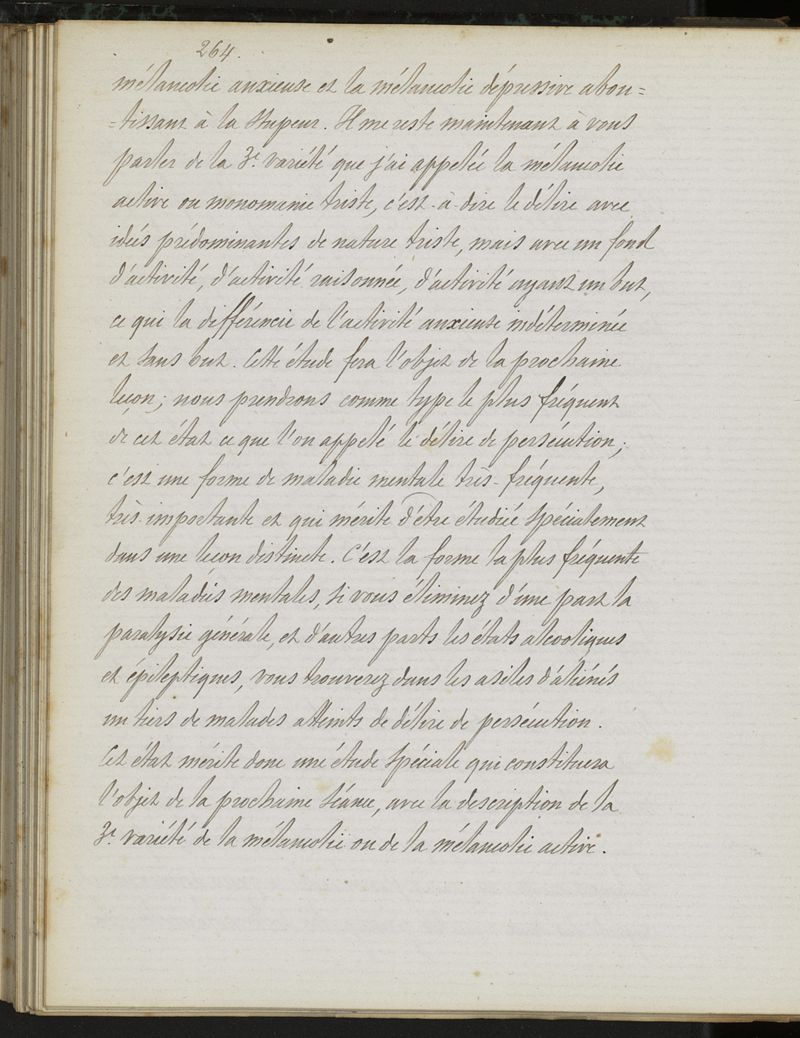 264.
mélancolie anxieuse et la mélancolie dépressive abou=
=tissant à la stupeur. Il me reste maintenant à vous
parler de la 3e. variété que j'ai appelée la mélancolie
active ou monomanie triste, c'est-à-dire le délire avec
idées prédominantes de nature triste, mais avec un fond
d'activité, d'activité raisonnée, d'activité ayant un but,
ce qui la différencie de l'activité anxieuse indéterminée
et sans but. Cette étude fera l'objet de la prochaine
leçon; nous prendrons comme type le plus fréquent
de cet état ce que l'on appelé le délire de persécution;
c'est une forme de maladie mentale très-fréquente,
très-importante et qui mérite d'être étudiée spécialement
dans une leçon distincte. C'est la forme la plus fréquente
des maladies mentales, si vous éliminez d'une part la
paralysie générale, et d'autres parts les états alcooliques
et épileptiques, vous trouverez dans les asiles d'aliénés
un tiers de malades atteints de délire de persécution.
Cet état mérite donc une étude spéciale qui constituera
l'objet de la prochaine séance, avec la description de la
3e variété de la mélancolie ou de la mélancolie active.